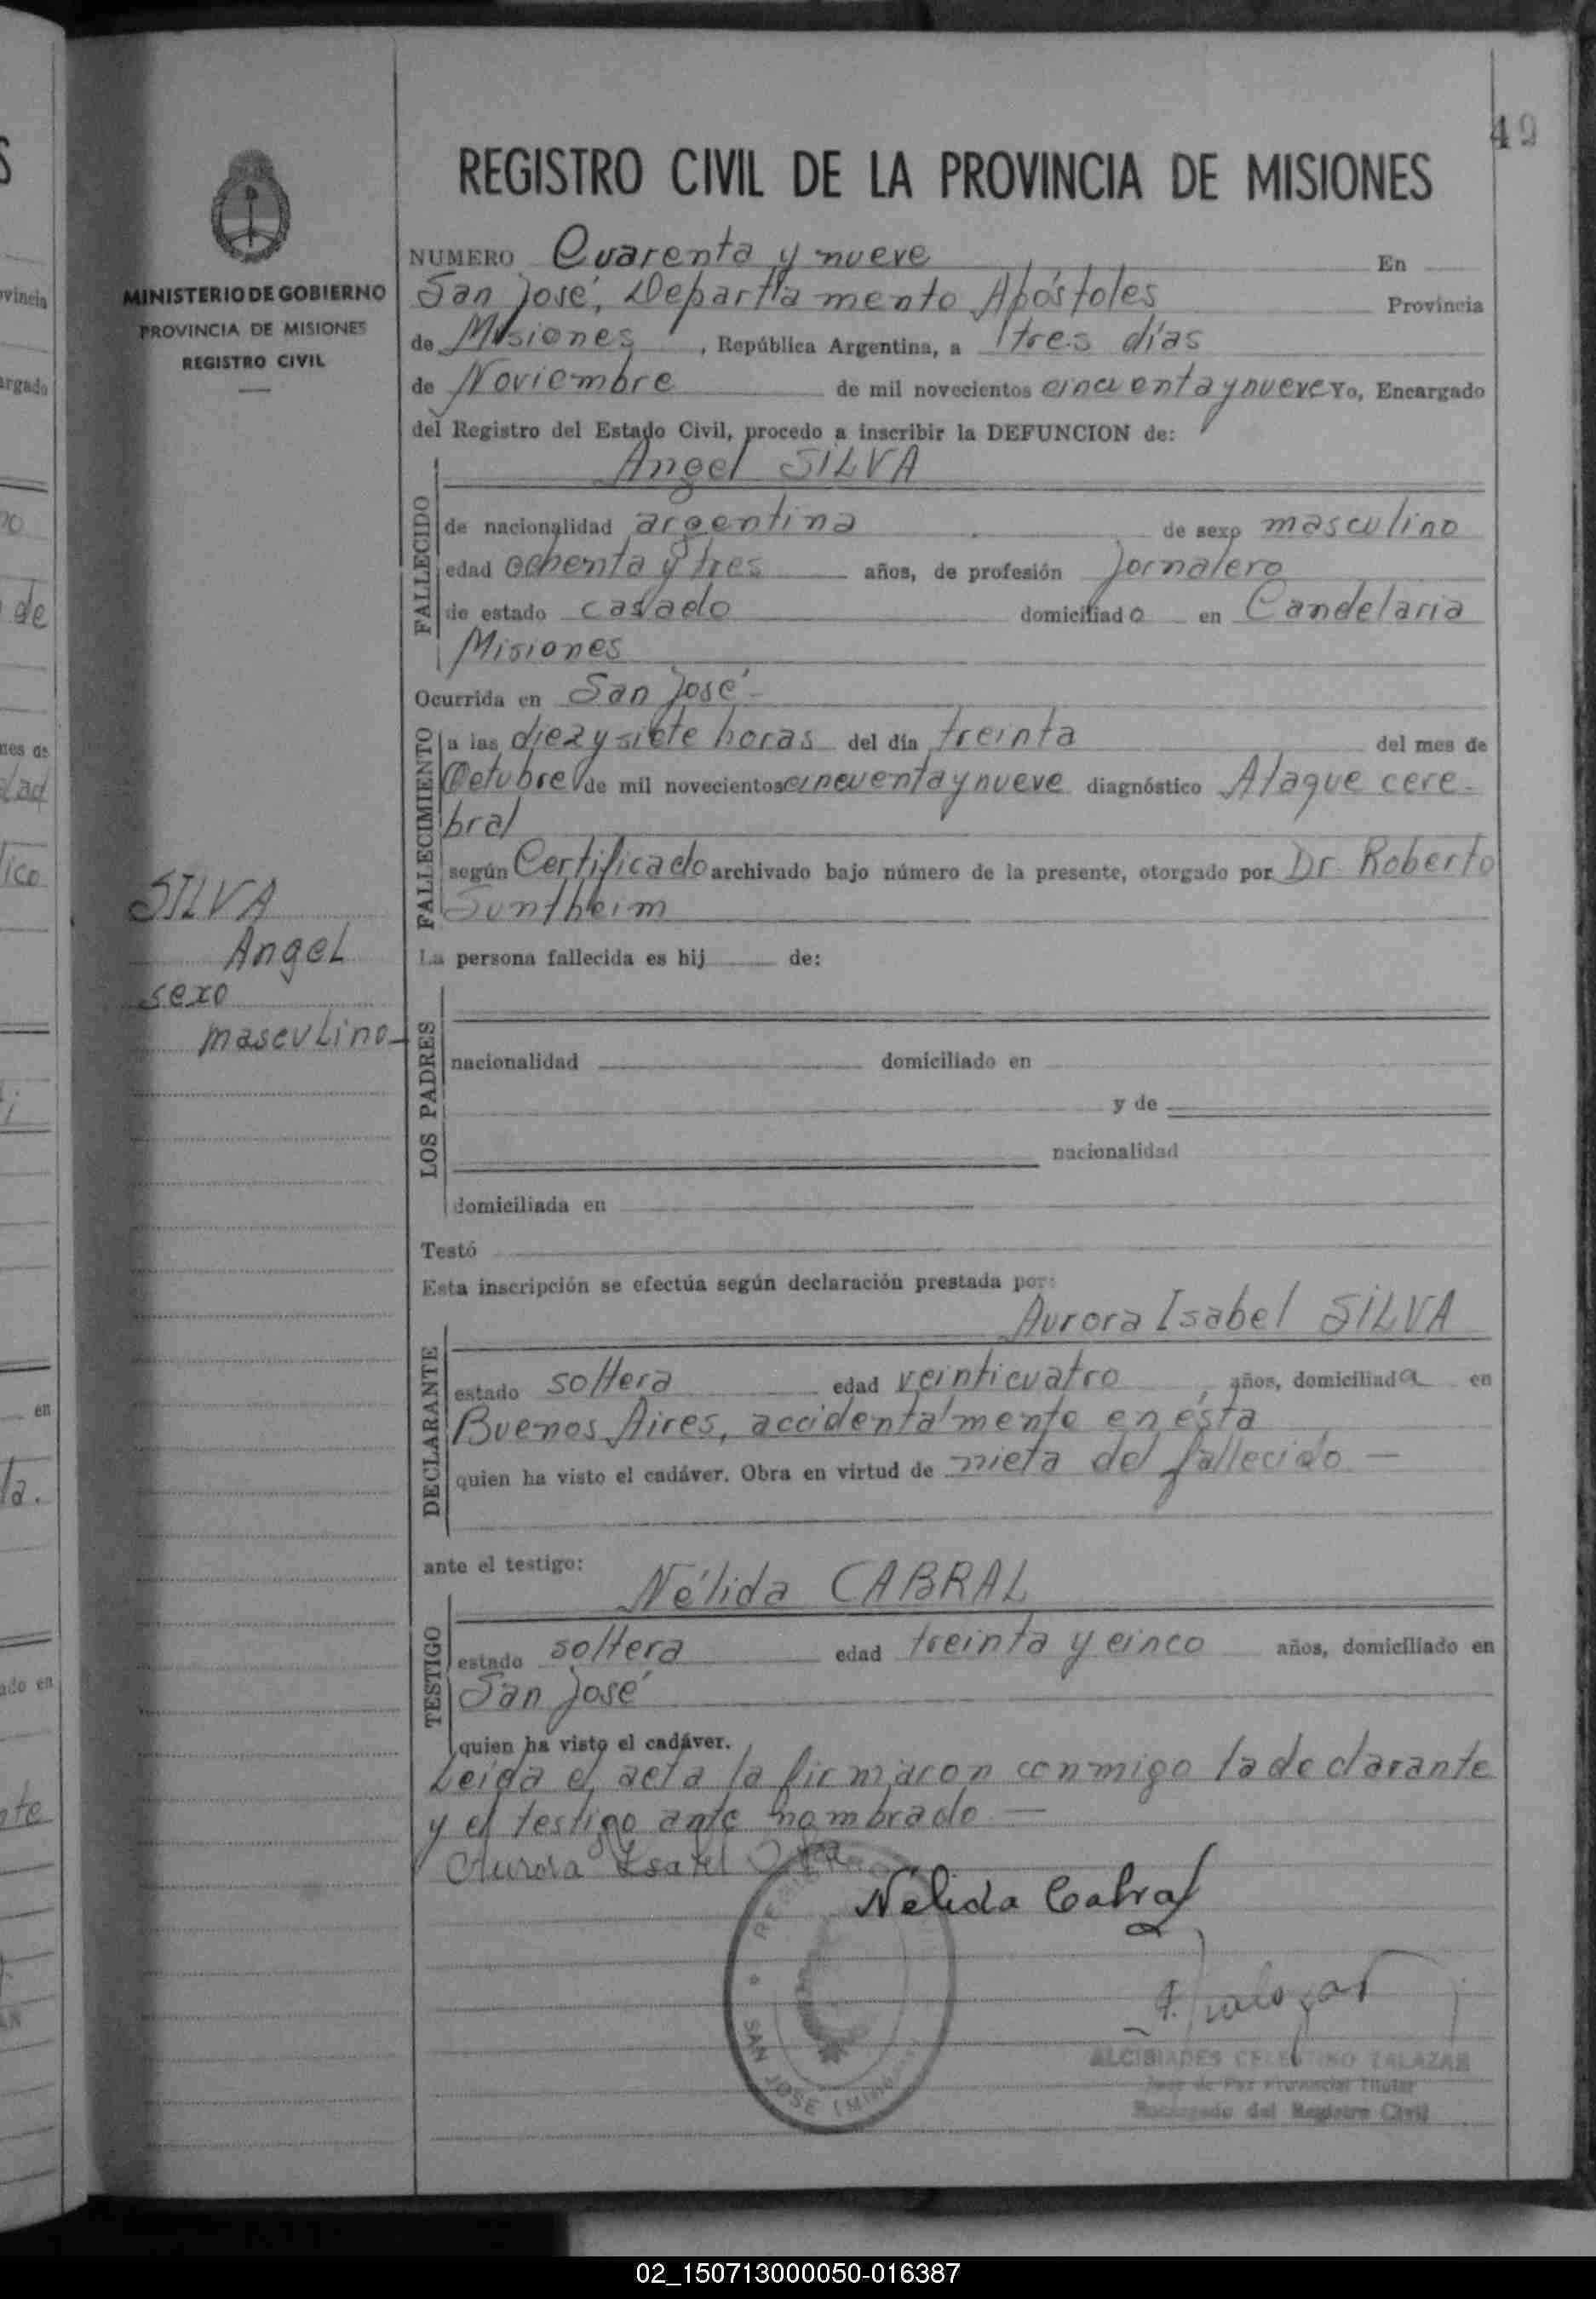 49
REGISTRO CIVIL DE LA PROVINCIA DE MISIONES
MINISTERIO DE GOBIERNO
PROVINCIA DE MISIONES
REGISTRO CIVIL
NUMERO Cuarenta y nueve En
San José, Departamento Apóstoles Provincia
de Misiones, República Argentina, a tres días
de Noviembre de mil novecientos cincuenta y nueve Yo, Encargado
del Registro del Estado Civil, procedo a inscribir la DEFUNCION de:
Angel SILVA
FALLECIDO
de nacionalidad argentina de sexo masculino
edad ochenta y tres años, de profesión Jornalero
de estado casado domiciliado en Candelaria
Misiones
Ocurrida en San José
FALLECIMIENTO
a las diez y siete horas del día treinta del mes de
Octubre de mil novecientos cincuenta y nueve diagnóstico Ataque cere-
bral
según Certificado archivado bajo número de la presente, otorgado por Dr. Roberto
Suntheim
SILVA
Angel
sexo
masculino
La persona fallecida es hij de:
LOS PADRES
nacionalidad domiciliado en
y de
nacionalidad
domiciliada en
Testó
Esta inscripción se efectúa según declaración prestada por:
Aurora Isabel SILVA
DECLARANTE
estado soltera edad veinticuatro años, domiciliada en
Buenos Aires, accidentalmente en ésta
quien ha visto el cadáver. Obra en virtud de nieta del fallecido —
ante el testigo:
Nélida CABRAL
TESTIGO
estado soltera edad treinta y cinco años, domiciliado en
San José
quien ha visto el cadáver.
Leida el acta la firmaron conmigo la declarante
y el testigo ante nombrado —
Aurora Isabel Silva
Nélida Cabral
SAN JOSE
ALCIBIADES CELESTINO TALAZAR
Juez de Paz Provincial Titular
Encargado del Registro Civil
02_150713000050-016387